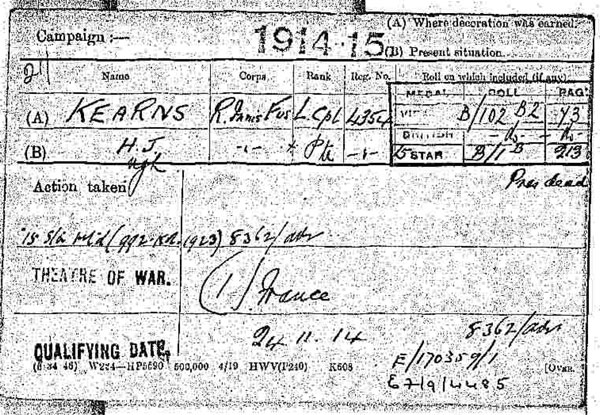 Campaign :— 1914-15 (A) Where decoration was earned.
(B) Present situation.
Name Corps Rank Reg. No. Roll on which included (if any).
MEDAL ROLL PAGE
(A) KEARNS R. Innis Fus L Cpl 4354 VICTORY B/102 B2 73
BRITISH -do- -do-
(B) H. J. -,,- * Pte -,,- 15 STAR B/1 B 213
Action taken Pres dead
'15 Sta (992-KR-1923) 8362/adv
THEATRE OF WAR. (1) France
24.11.14 8362/adv
QUALIFYING DATE, E/170359/1
(6 34 46) W234—HP5590 500,000 4/19 HWV(P240) K608 [OVER.
E7/9/4485